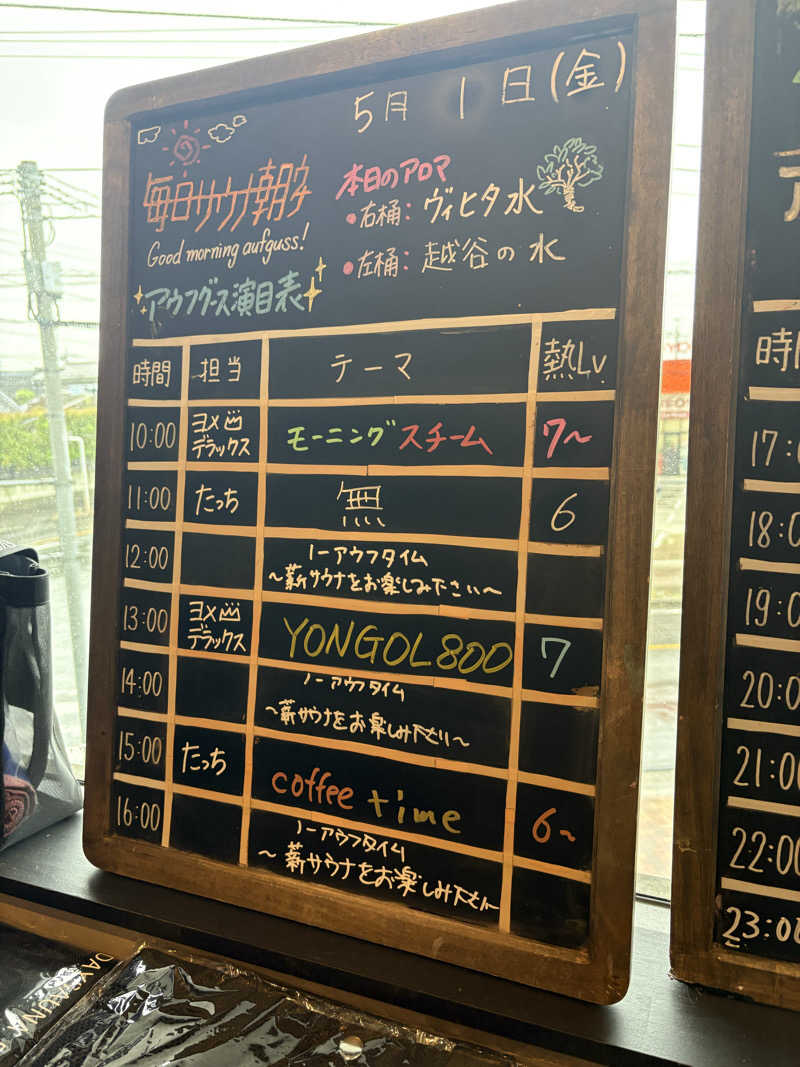 5月 1日(金)
毎日サウナ朝タ
Good morning aufguss!
アウフグース演目表
本日のアロマ
・右桶: ヴィヒタ水
・左桶: 越谷の水
時間 担当 テーマ 熱Lv
10:00 ヨメ デラックス モーニングスチーム 7~
11:00 たっち 無 6
12:00 ノーアウフタイム
~薪サウナをお楽しみ下さい~
13:00 ヨメ デラックス YONGOL800 7
14:00 ノーアウフタイム
~薪サウナをお楽しみ下さい~
15:00 たっち coffee time 6~
16:00 ノーアウフタイム
~薪サウナをお楽しみ下さい~
時
17:
18:0
19:0
20:0
21:0
22:00
23:00